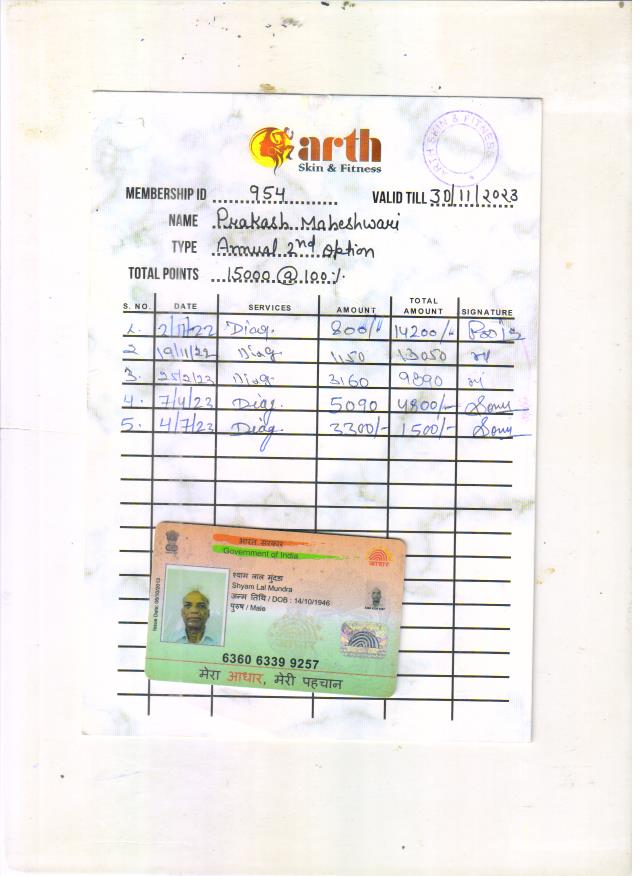 arth
Skin & Fitness
ARTH SKIN & FITNESS
MEMBERSHIP ID 954 VALID TILL 30/11/2023
NAME Prakash Maheshwari
TYPE Annual 2nd option
TOTAL POINTS 15000 @ 100%
S. NO. DATE SERVICES AMOUNT TOTAL AMOUNT SIGNATURE
1. 2/11/22 Diag. 800/- 14200/-
2 19/11/22 Diag. 1150 13050
3. 25/2/23 Diag. 3160 9890
4. 7/4/23 Diag. 5090 4800/- Sonu
5. 4/7/23 Diag. 3300/- 1500/- Sonu
भारत सरकार
Government of India
आधार
श्याम लाल मुंदडा
Shyam Lal Mundra
जन्म तिथि / DOB : 14/10/1946
पुरुष / Male
6360 6339 9257
मेरा आधार, मेरी पहचान